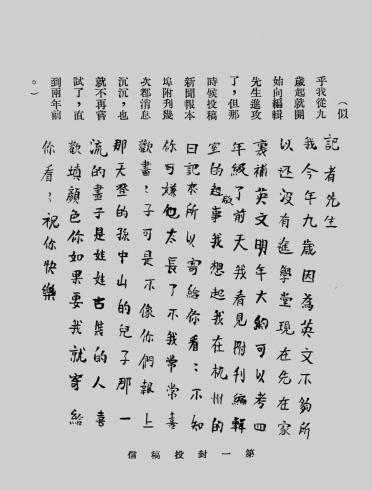 （似
乎我從九
歲起就開
始向編輯
先生進攻
了，但那
時候投稿
新聞報本
埠附刊幾
次都消息
沉沉，也
就不再嘗
試了，直
到兩年前
。）
記者先生
我今年九歲因為英文不夠所
以还没有進學堂現在先在家
裏補英文明年大約可以考四
年級了前天我看見附刊編輯
室的啟事我想起我在杭州的
日記本所以寄給你看：不知
你可嫌他太長了不我常常喜
歡畫：子可是不像你們報上
那天登的孫中山的兒子那一
流的畫子是娃娃古裝的人喜
歡填顏色你如果要我就寄給
你看：祝你快樂
第一封投稿信